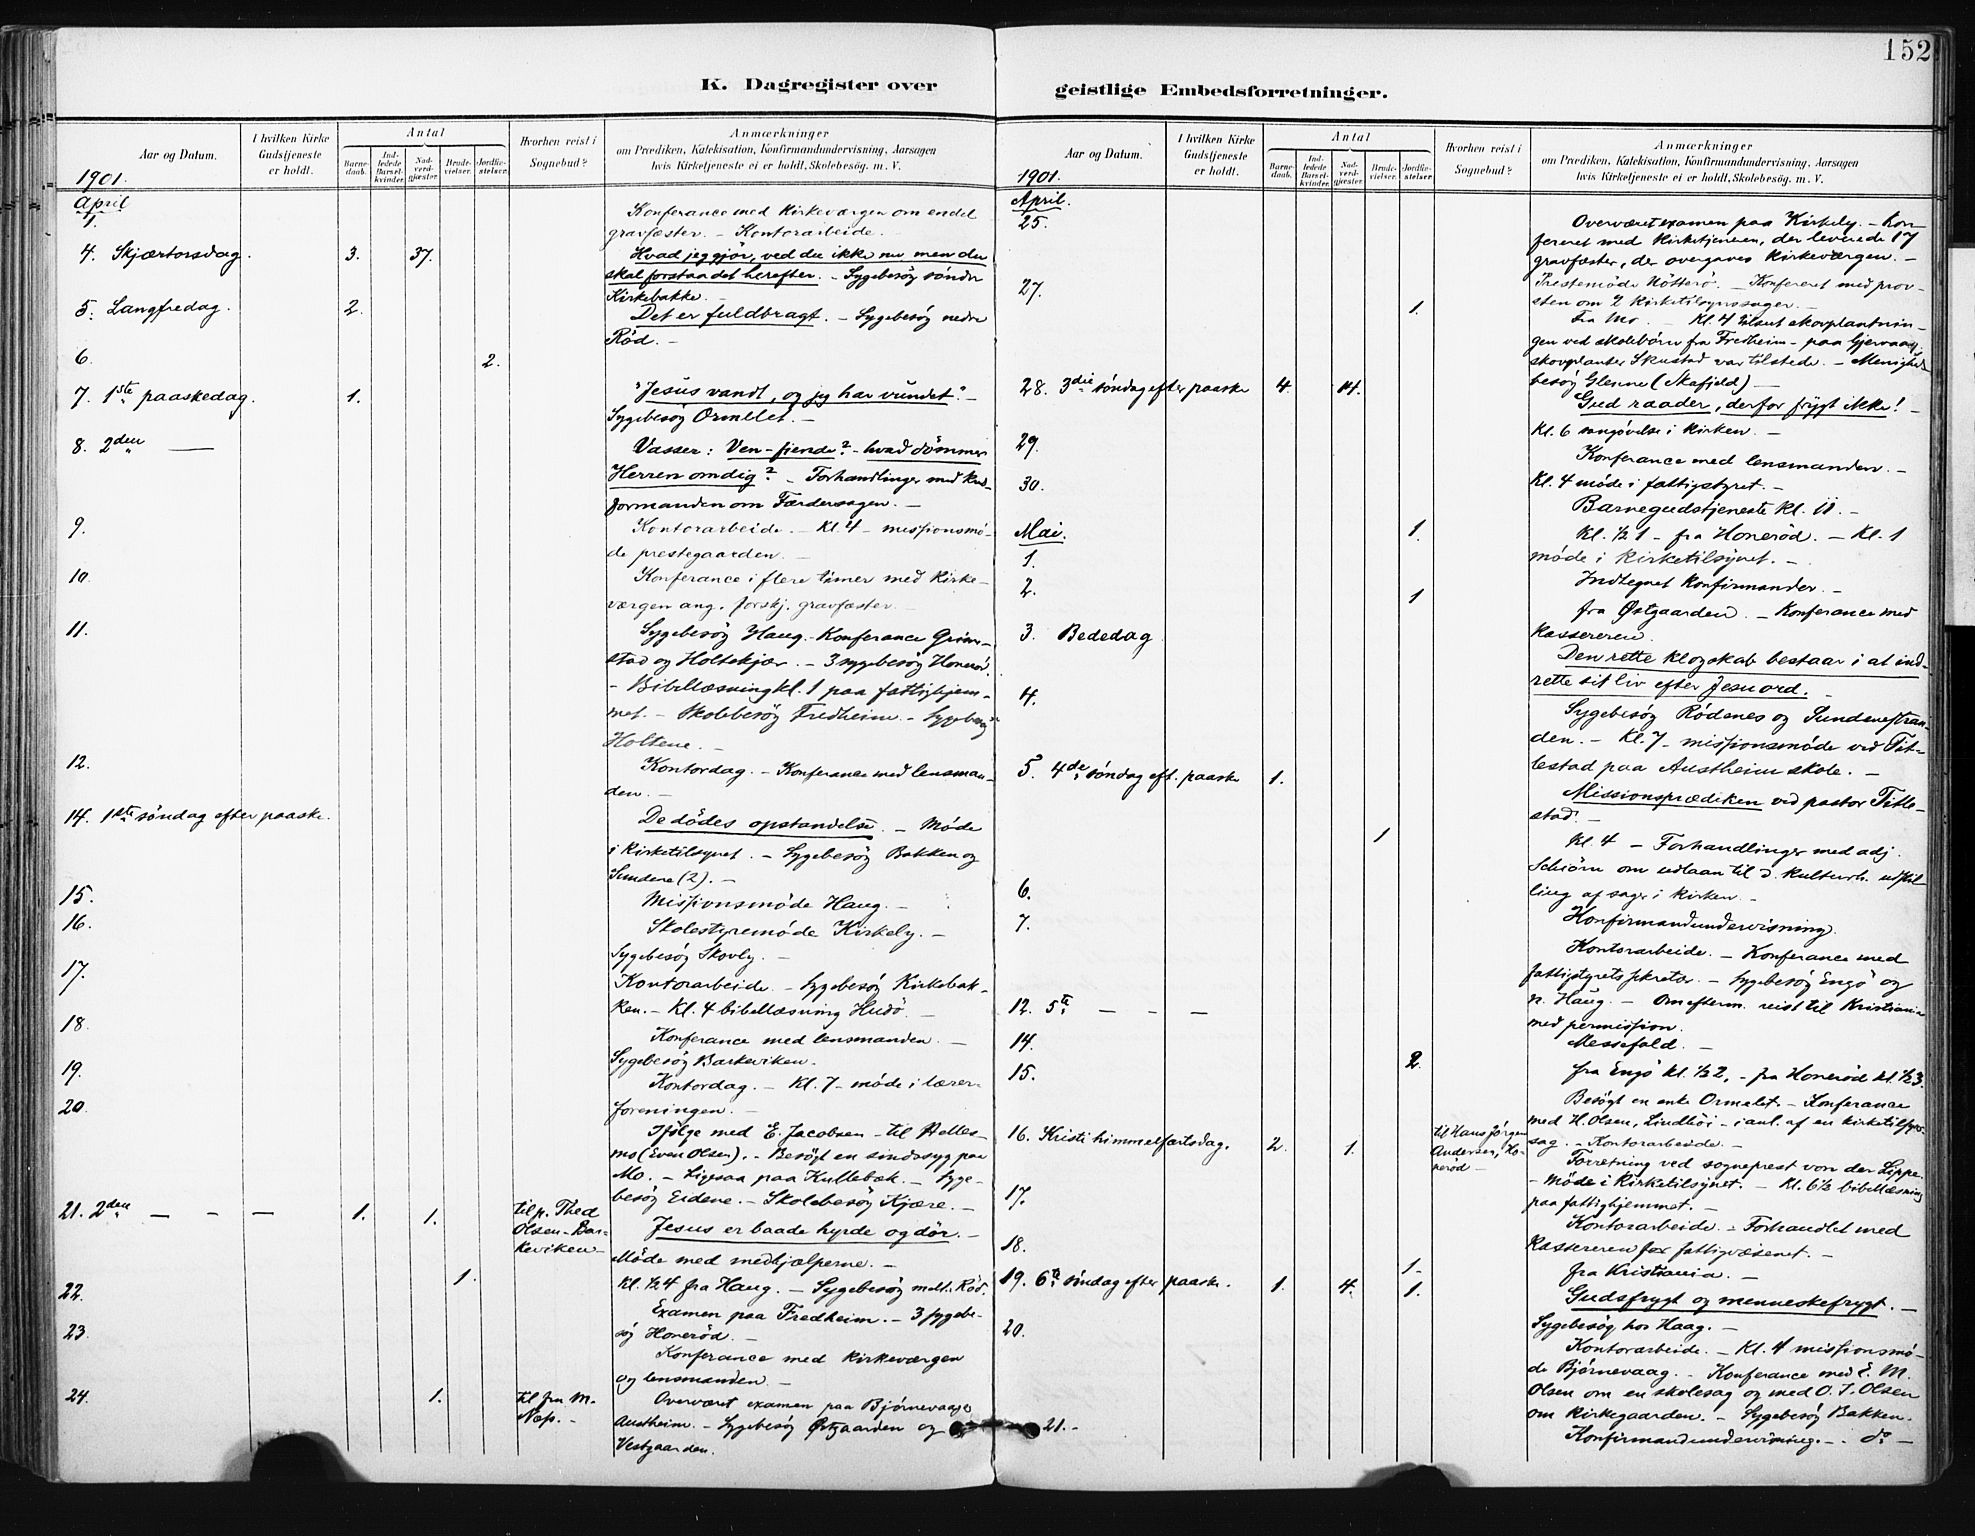 152
K. Dagregister over
Aar og Datum.
I hvilken Kirke
Gudstjeneste
er holdt.
Antal
Barne-
daab.
Ind-
ledede
Barsel-
kvinder.
Nad-
verd-
gjæster.
Brude-
vielser.
Jordfæ-
stelser.
Hvorhen reist i
Sognebud?
Anmærkninger
om Prædiken, Katekisation, Konfirmandundervisning, Aarsagen
hvis Kirketjeneste ei er holdt, Skolebesøg. m. V.
1901.
April
1. Konferance med Kirkeværgen om endel
gravfæster. - Kontorarbeide.
4. Skjærtorsdag. 3. 37. Hvad jeg gjør, ved du ikke nu men du
skal forstaa det herefter. - Sygebesøg søndre
Kirkebakke. -
5. Langfredag. 2. Det er fuldbragt. - Sygebesøg nedre
Rød. -
6. 2.
7. 1ste paaskedag. 1. "Jesus vandt, og jeg har vundet". -
Sygebesøg Ormelet. -
8. 2den — Vasser: Ven - fiende? - hvad dömmer
Herren om dig? - Forhandlinger med
formanden om Færdersagen. -
9. Kontorarbeide. - Kl. 4 - missionsmø-
de prestegaarden. -
10. Konferance i flere timer med Kirke-
værgen ang. forskj. gravfæster. -
11. Sygebesøg Haug. - Konferance Grim-
stad og Holtekjær. - 3 sygebesøg Honerød.
- Bibellæsning kl. 1 paa fattighjem-
met. - Skolebesøg Fredheim. - Sygebesøg
Holtene. -
12. Kontordag. - Konferance med lensman-
den. -
14. 1ste søndag efter paaske. De dödes opstandelse. - Møde
i Kirketilsynet. - Sygebesøg Bakken og
Sundene (2). -
15. Missionsmøde Haug. -
16. Skolestyremøde Kirkely. -
Sygebesøg Skovly. -
17. Kontorarbeide. - Sygebesøg Kirkebak-
ken. - Kl. 4 bibellæsning Hudö. -
18. Konferance med lensmanden. -
Sygebesøg Barkeviken.
19. Kontordag. - Kl. 7 - møde i lærer-
foreningen. -
20. Ifølge med E. Jacobsen - til Helles-
mo (Even Olsen). - Besøgt en sindssyg paa
Mo. - Ligesaa paa Kullebæk. - Syge-
besøg Eidene. - Skolebesøg Kjære. -
21. 2den — — — 1. 1. til p. Thed
Olsen - Bar-
keviken -
Jesus er baade hyrde og dör. -
Møde med medhjælperne. -
1. Kl. ½ 4 fra Haug. - Sygebesøg mell. Rød.
22. Examen paa Fredheim. - 3 sygebe-
søg Honerød. -
23. Konferance med kirkeværgen
og lensmanden. -
24. 1. til fru M.
Næss. -
Overværet examen paa Bjørnevaag og
Austheim. - Sygebesøg Østgaarden og
Vestgaarden.
geistlige Embedsforretninger.
Aar og Datum.
I hvilken Kirke
Gudstjeneste
er holdt.
Antal
Barne-
daab.
Ind-
ledede
Barsel-
kvinder.
Nad-
verd-
gjæster.
Brude-
vielser.
Jordfæ-
stelser.
Hvorhen reist i
Sognebud?
Anmærkninger
om Prædiken, Katekisation, Konfirmandundervisning, Aarsagen
hvis Kirketjeneste ei er holdt, Skolebesøg. m. V.
1901.
April.
25. Overværet examen paa Kirkely. - Kon-
fereret med Kirketjeneren, der leverede 17
gravfæster, der overgaves Kirkeværgen. -
27. Prestemøde Nøtterø. - Konfereret med prov-
sten om 2 Kirketilsynssager. -
1. Fra Mo. - Kl. 4 tilseet skovplantnin-
gen ved skolebörn fra Fredheim - paa Gjervaag,
skovplanter Skustad var tilstede. - Menigheds-
besøg Glenne (Skafjeld) -
28. 3die søndag efter paaske 4. 14. Gud raader, derfor frygt ikke! -
Kl. 6 sangøvelse i kirken. -
29. Konferance med lensmanden. -
Kl. 4 møde i fattigstyret. -
30. Barnegudstjeneste kl. 11. -
Mai.
1. Kl. ½ 1 - fra Honerød. - Kl. 1
møde i kirketilsynet. -
1.
2. Indtegnet konfirmander. -
1 fra Østgaarden. - Konferance med
Kassereren.
3. Bededag Den rette klogskab bestaar i at ind-
rette sit liv efter Jesu ord. -
4. Sygebesøg Rødenes og Sundenestran-
den. - Kl. 7 - missionsmøde ved Tit-
lestad paa Austheim skole. -
5. 4de søndag eft. paaske 1. Missionsprædiken ved pastor Title-
stad. -
1 Kl. 4 - Forhandlinger med adj.
Schiørn om udlaan til d. kulturh. udstil-
ling af sager i kirken. -
6. Konfirmandundervisning.
7. Kontorarbeide. - Konferance med
fattigstyrets sekretær. - Sygebesøg Engö og
n. Haug. - Om efterm. reist til Kristiania
med permission.
12. 5te — — — Messefald. -
14. 2. fra Engö kl. ½ 2, - fra Honerød kl. ½ 3.
15. Besøgt en enke Ormelet. - Konferance
med H. Olsen, Lindhöi - i anl. af en kirketilsyns-
sag. - Kontorarbeide. -
16. Kristi himmelfartsdag. 2. 1. til Hans Jørgen
Andersen, Ho-
nerød -
Forretning ved sogneprest von der Lippe.
- Møde i Kirketilsynet. - Kl. 6½ bibellæsning
paa fattighjemmet. -
17. Kontorarbeide. - Forhandlet med
Kassereren for fattigvæsenet. -
18. 1. fra Kristiania. -
19. 6te søndag efter paaske. 1. 4. 1. Gudsfrygt og menneskefrygt. -
Sygebesøg hos Haag. -
20. Kontorarbeide. - Kl. 4 missionsmø-
de Bjørnevaag. - Konferance med E. M.
Olsen om en skolesag og med O. J. Olsen
om kirkegaarden. - Sygebesøg Bakken.
21. - Konfirmandundervisning. - do -